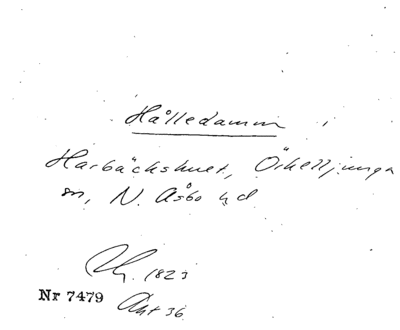 Hålledamm i
Harbäckshult, Örkelljunga
sn, N. Åsbo hd
1823
Nr 7479 Akt 36